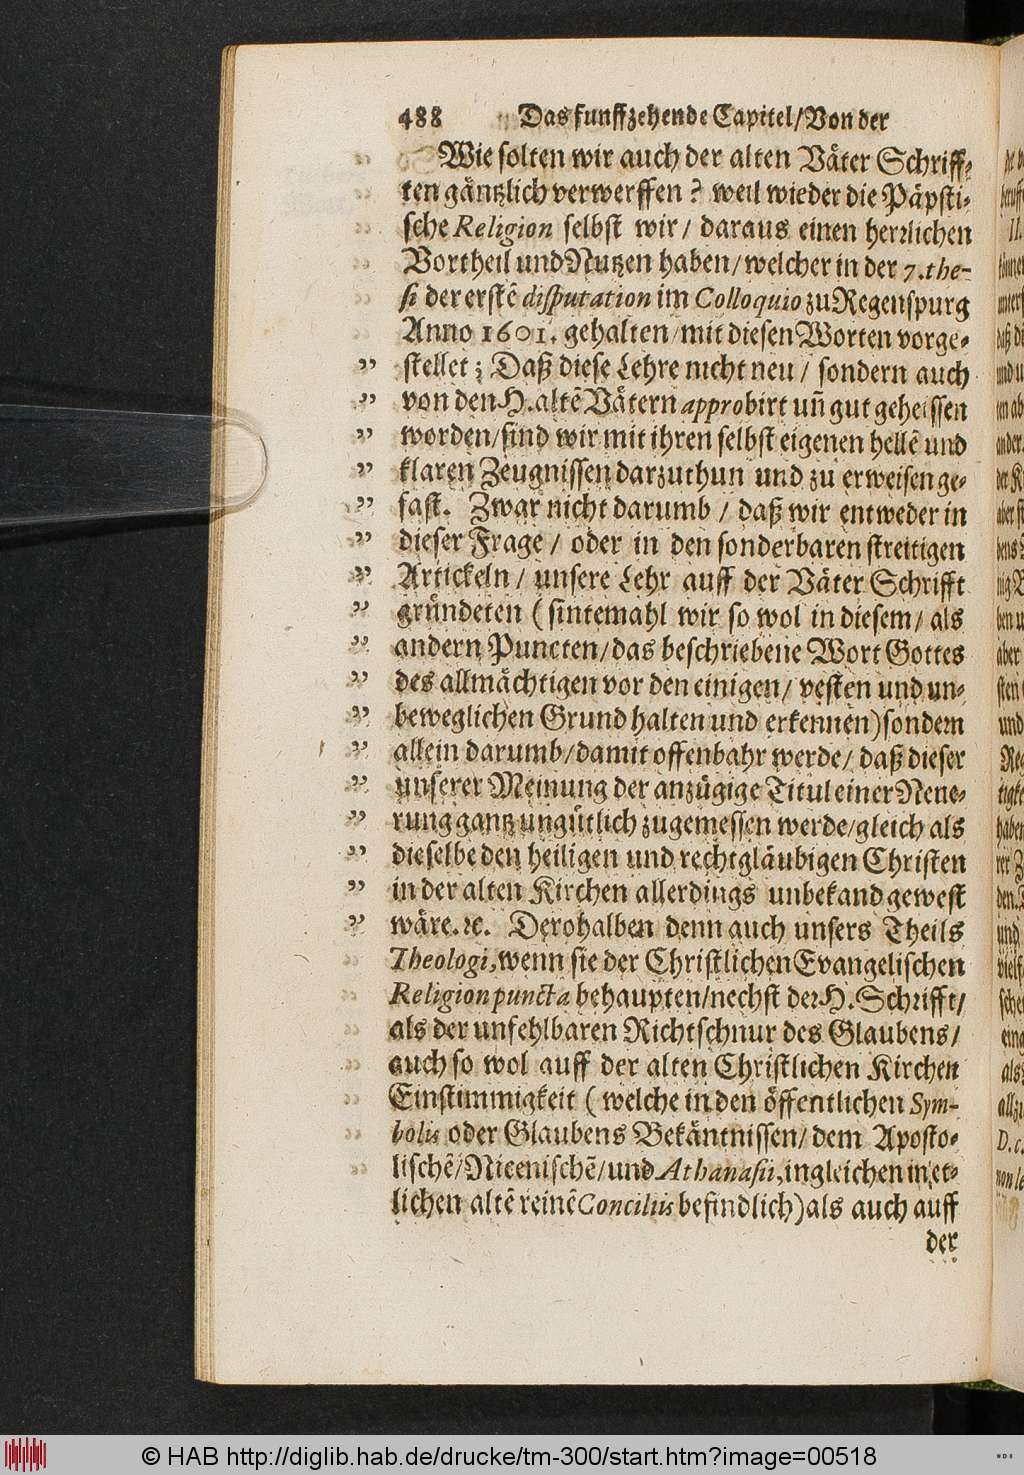 488 Das funffzehende Capitel/Von der
Wie solten wir auch der alten Väter Schriff-
ten gäntzlich verwerffen? weil wieder die Päpsti-
sche Religion selbst wir/ daraus einen herꝛlichen
Vortheil und Nutzen haben/welcher in der 7.the-
si der erstē disputation im Colloquio zu Regenspurg
Anno 1601. gehalten/mit diesen Worten vorge-
„ stellet; Daß diese Lehre nicht neu/ sondern auch
„ von den H.altē Vätern approbirt uñ gut geheissen
„ worden/sind wir mit ihren selbst eigenen hellē und
„ klaren Zeugnissen darzuthun und zu erweisen ge-
„ fast. Zwar nicht darumb/ daß wir entweder in
„ dieser Frage/ oder in den sonderbaren streitigen
„ Artickeln/ unsere Lehr auff der Väter Schrifft
„ gründeten (sintemahl wir so wol in diesem/ als
„ andern Puncten/das beschriebene Wort Gottes
„ des allmächtigen vor den einigen/ vesten und un-
„ beweglichen Grund halten und erkennen)sondern
„ allein darumb/damit offenbahr werde/ daß dieser
„ unserer Meinung der anzügige Titul einer Neue-
„ rung gantz ungütlich zugemessen werde/gleich als
„ dieselbe den heiligen und rechtgläubigen Christen
„ in der alten Kirchen allerdings unbekand gewest
„ wäre.ꝛc. Derohalben denn auch unsers Theils
Theologi,wenn sie der Christlichen Evangelischen
Religion puncta behaupten/nechst der H.Schrifft/
als der unfehlbaren Richtschnur des Glaubens/
auch so wol auff der alten Christlichen Kirchen
Einstimmigkeit (welche in den öffentlichen Sym-
bolis oder Glaubens Bekäntnissen/ dem Aposto-
lischē/Niceenischē/und Athanasii,ingleichen in et-
lichen altē reinē Conciliis befindlich)als auch auff
der
© HAB http://diglib.hab.de/drucke/tm-300/start.htm?image=00518